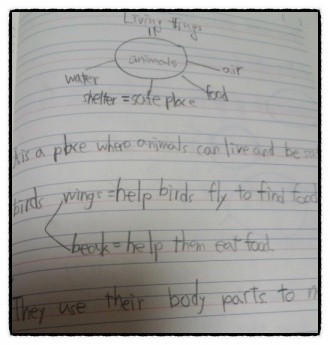 Living things
animals
water
air
shelter = safe place
food
is a place where animals can live and be
birds wings = help birds fly to find food
beak = help them eat food.
They use their body parts to